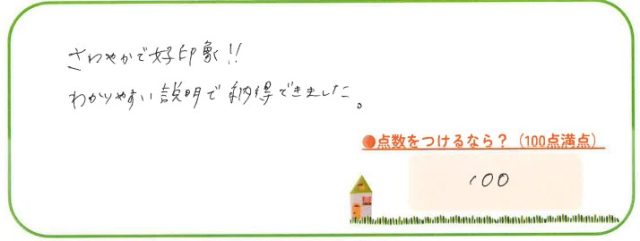 さわやかで好印象!!
わかりやすい説明で納得できました。
●点数をつけるなら？（100点満点）
100